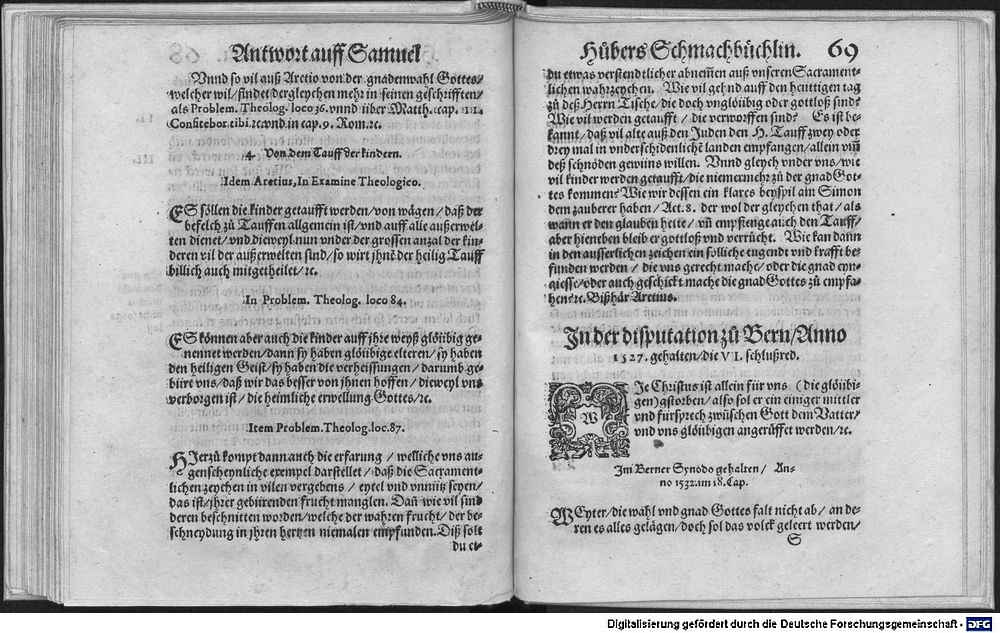 Antwort auff Samuel
Vnnd so vil auß Aretio von der gnadenwahl Gottes/
welcher wil/ findet dergleychen mehr in seinen geschrifften/
als Problem. Theolog. loco 36. vnnd über Matth. cap. 11.
Confitebor tibi. ꝛc. vnd in cap. 9. Rom. ꝛc.
4. Von dem Tauff der kindern.
Idem Aretius, In Examine Theologico.
ES söllen die kinder getaufft werden/ von wägen/ daß der
befelch zů Tauffen allgemein ist/ vnd auff alle außerwel-
ten dienet/ vnd dieweyl nun vnder der grossen anzal der kin-
deren vil der außerwelten sind/ so wirt jhnẽ der heilig Tauff
billich auch mitgetheilet/ ꝛc.
In Problem. Theolog. loco 84.
ES können aber auch die kinder auff jhre weyß glöübig ge-
nennet werden/ dann sy haben glöübige elteren/ sy haben
den heiligen Geist/ sy haben die verheissungen/ darumb ge-
bürt vns/ daß wir das besser von jhnen hoffen/ dieweyl vns
verborgen ist/ die heimliche erwellung Gottes/ ꝛc.
Item Problem. Theolog. loc. 87.
HIerzů kompt dann auch die erfarung/ welliche vns au-
genscheynliche exempel darstellet/ daß die Sacrament-
lichen zeychen in vilen vergebens/ eytel vnd vnnütz seyen/
das ist/ jhrer gebürenden frucht manglen. Dañ wie vil sind
deren beschnitten worden/ welche der wahren frucht/ der be-
schneydung in jhren hertzen niemalen empfunden. Diß solt
du et-
Hůbers Schmachbüchlin. 69
du etwas verstendtlicher abnem̃en auß vnseren Sacrament-
lichen wahrzeychen. Wie vil gehnd auff den heüttigen tag
zů deß Herrn Tische/ die doch vnglöübig oder gottloß sind?
Wie vil werden getaufft/ die verworffen sind? Es ist be-
kannt/ daß vil alte auß den Juden den H. Tauff zwey oder
drey mal in vnderscheidenlichẽ landen empfangen/ allein vm̃
deß schnöden gewüns willen. Vnnd gleych vnder vns/ wie
vil kinder werden getaufft/ die niemermehr zů der gnad Got-
tes kommen? Wie wir dessen ein klares beyspil am Simon
dem zauberer haben/ Act. 8. der wol der gleychen that/ als
wann er den glauben hette/ vñ empfienge auch den Tauff/
aber hieneben bleib er gottloß vnd verrůcht. Wie kan dann
in den ausserlichen zeichen ein sölliche tugend vnd krafft be-
funden werden/ die vns gerecht mache/ oder die gnad eyn-
giesse/ oder auch geschickt mache die gnad Gottes zů empfa-
hen? ꝛc. Bißhär Aretius.
In der disputation zů Bern/ Anno
1527. gehalten/ die VI. schlußred.
WIe Christus ist allein für vns (die glöübi-
gen) gstorben/ also sol er ein einiger mittler
vnd fürsprech zwüschen Gott dem Vatter/
vnd vns glöübigen angerüffet werden/ ꝛc.
Im Berner Synodo gehalten/ An-
no 1532. im 18. Cap.
WEyter/ die wahl vnd gnad Gottes falt nicht ab/ an de-
ren es alles gelägen/ doch sol das volck geleert werden/
S
Digitalisierung gefördert durch die Deutsche Forschungsgemeinschaft - DFG